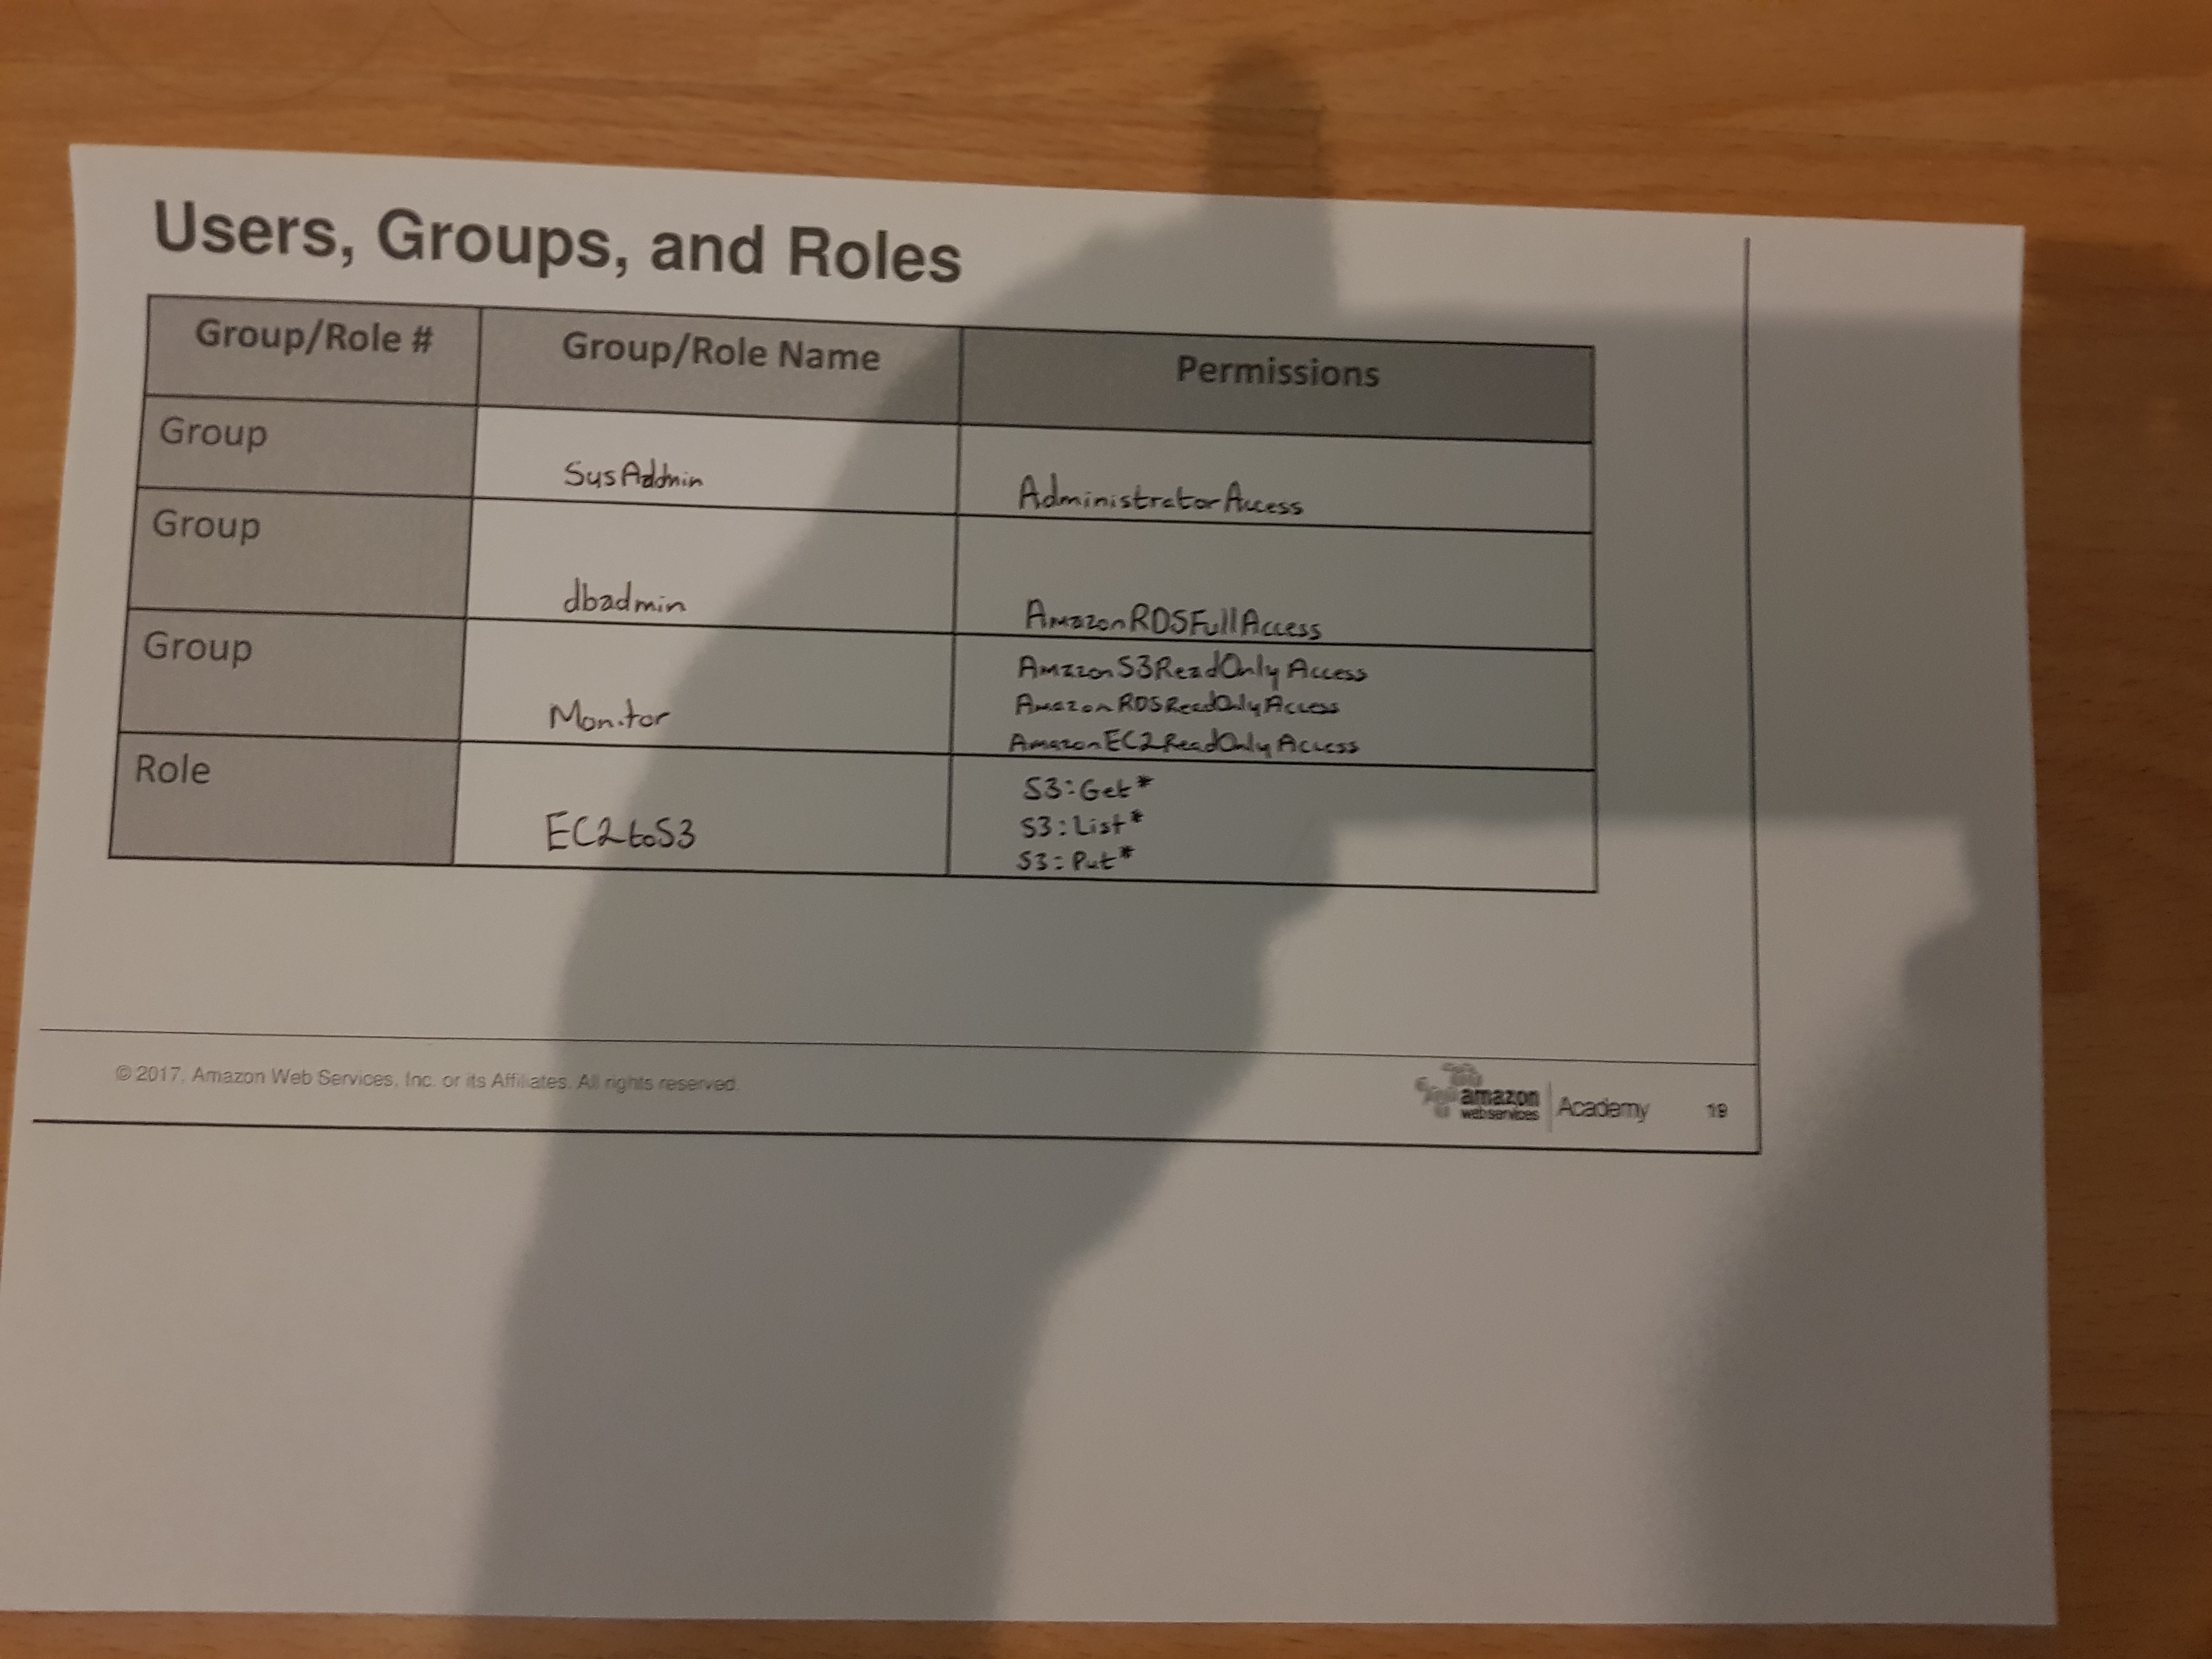 Users, Groups, and Roles
Group/Role # Group/Role Name Permissions
Group
SusAddmin AdministratorAccess
Group
dbadmin AmazonRDSFullAccess
Group
Monitor
AmazonS3ReadOnlyAccess
AmazonRDSReadOnlyAccess
AmazonEC2ReadOnlyAccess
Role
EC2toS3
S3:Get*
S3:List*
S3:Put*
© 2017, Amazon Web Services, Inc. or its Affiliates. All rights reserved.
amazon
webservices
Academy 19